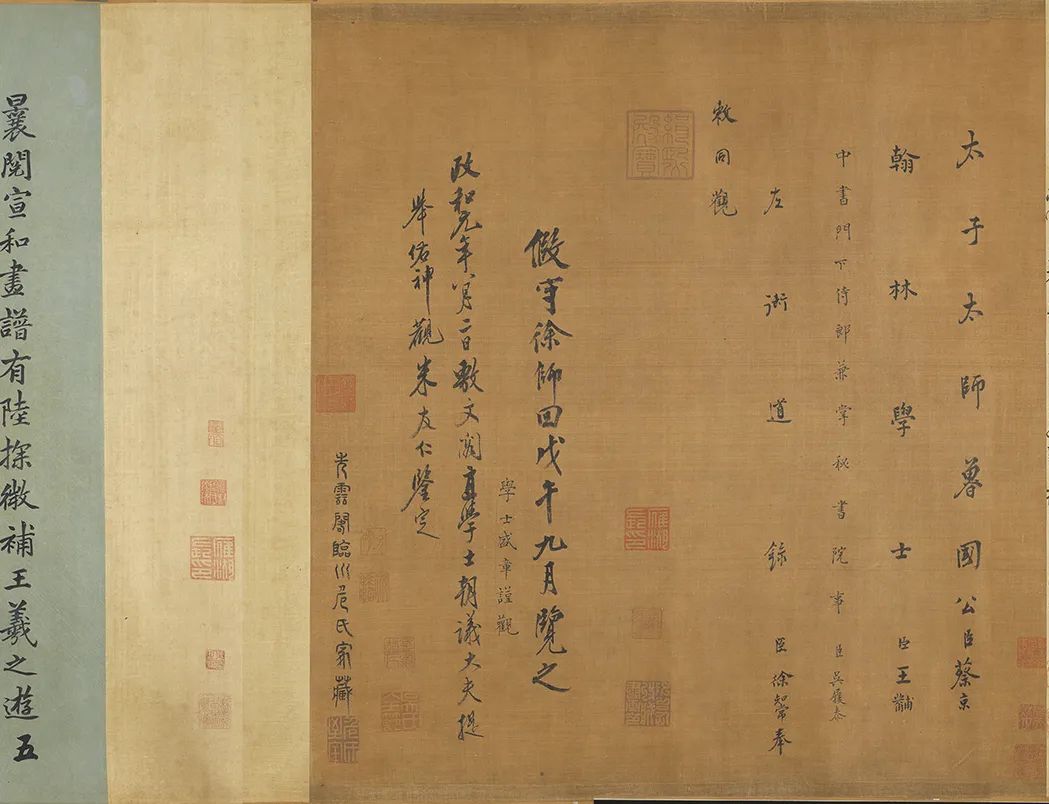 太子太師魯國公臣蔡京
翰林學士臣王黼
中書門下侍郎兼掌秘書院事臣吳
左街道錄臣徐知常奉
敕同觀
假守徐師回戊午九月覽之
學士盛章謹觀
政和元年八月二日敷文閣直學士朝議大夫提
舉佑神觀米友仁鑒定
雲閣臨川危氏家藏
曩閱宣和畫譜有陸探微補王羲之遊五